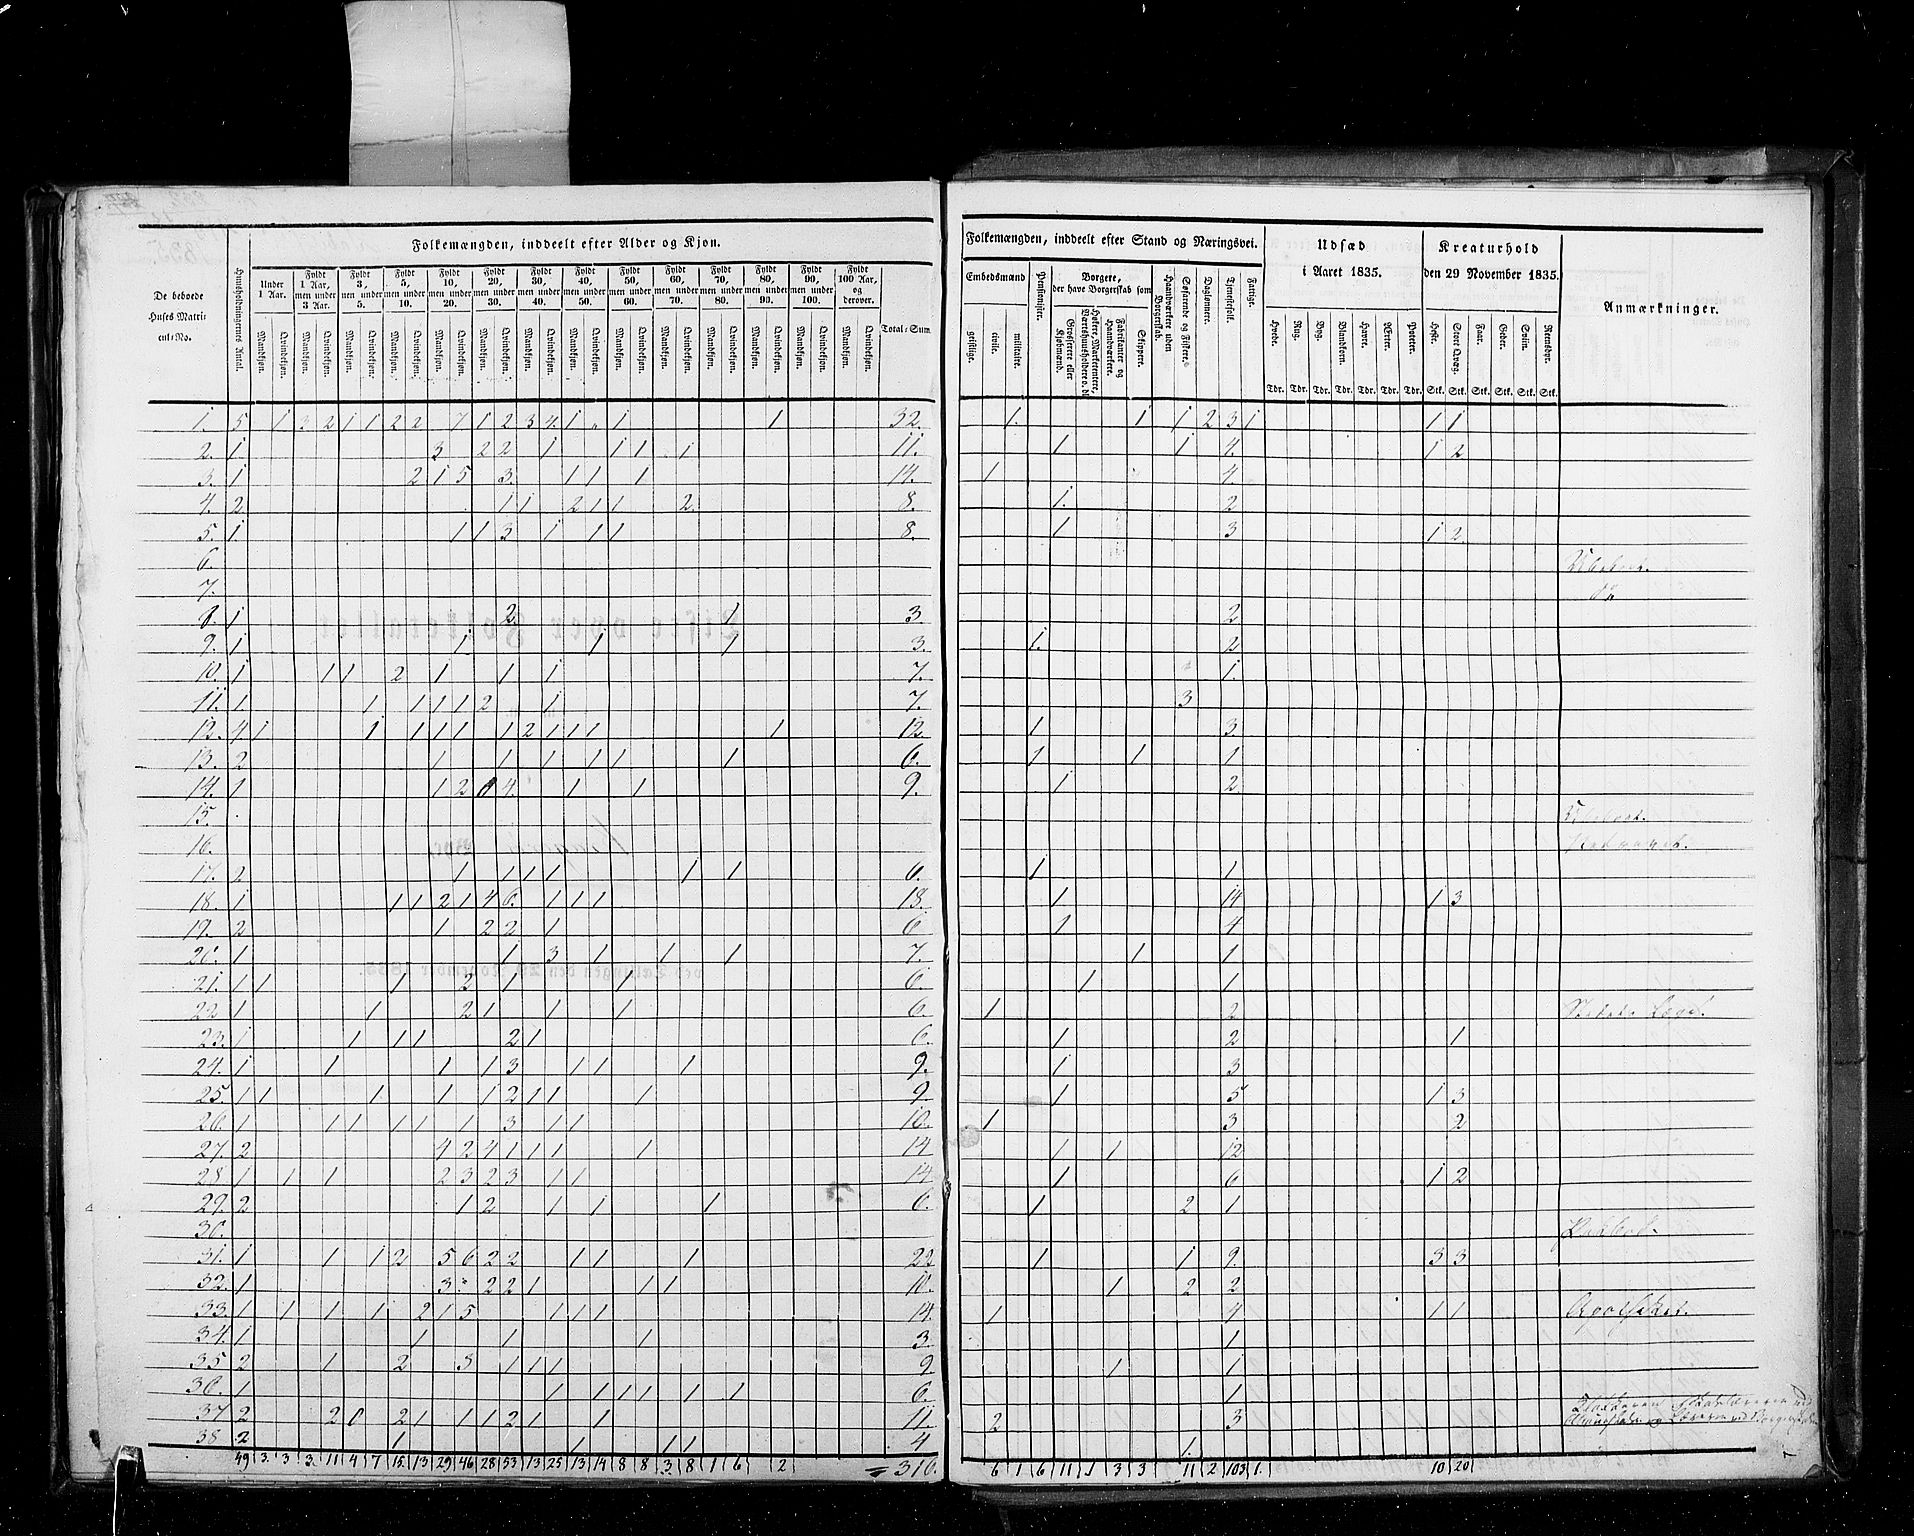 Folkemængden, inddeelt efter Alder og Kjøn.
De beboede Huses Matricul-No.
Huusholdningernes Antal.
Under 1 Aar.
Fyldt 1 Aar, men under 3 Aar.
Fyldt 3, men under 5.
Fyldt 5, men under 10.
Fyldt 10, men under 20.
Fyldt 20, men under 30.
Fyldt 30, men under 40.
Fyldt 40, men under 50.
Fyldt 50, men under 60.
Fyldt 60, men under 70.
Fyldt 70, men under 80.
Fyldt 80, men under 90.
Fyldt 90, men under 100.
Fyldt 100 Aar, og derover.
Mandkjøn. Qvindekjøn.
Total-Sum.
Folkemængden, inddeelt efter Stand og Næringsvei.
Embedsmænd
geistlige. civile. militaire.
Pensionister.
Borgere, der have Borgerskab som
Grosserere eller Kjøbmænd.
Fabrikanter og Haandværkere.
Skippere.
Haandværkere uden Borgerskab.
Søfarende og Fiskere.
Daglønnere.
Tjenestefolk.
Fattige.
Udsæd i Aaret 1835.
Hvede. Rug. Byg. Blandkorn. Havre. Ærter. Poteter.
Tdr. Tdr. Tdr. Tdr. Tdr. Tdr. Tdr.
Kreaturhold den 29 November 1835.
Heste. Stort Qvæg. Faar. Geder. Sviin. Rensdyr.
Stk. Stk. Stk. Stk. Stk. Stk.
Anmærkninger.
1. 5 1 2 2 1 1 2 2 7 1 2 3 4 1 1 1 32. 1. 1 1 2 3 1 1 1
2. 1 3 2 2 1 1 1 1 11. 1 1 4. 1 2
3. 1 2 1 5 3. 1 1 1 14. 1 4.
4. 2 1 1 2 1 1 2 8. 1. 2
5. 1 1 1 3 1 1 1 8. 1 3 1 2
6.
7.
8. 1 2 1 3 2
9. 1 1 1 1 3. 1. 2
10. 1 1 1 2 1 1 1 7. 1.
11. 1 1 1 1 1 2 1 7. 3
12. 4 1 1 1 1 1 1 2 1 1 1 1 12. 1 3
13. 2 1 1 1 1 1 1 6. 1 1 1
14. 1 1 2 4. 1 1 9. 1 2
15.
16.
17. 2 1 1 1 1 1 1 6. 1 1
18. 1 1 1 2 1 4 6. 1 1 1 18. 1 14 1 3
19. 2 1 2 2 1 6 1 4
20. 1 1 3 1 1 1 7. 1 1
21. 1 1 1 2 1 1 6. 1 1
22 1 1 2 1 1 1 6. 1 2
23. 1 1 1 1 2 1 6. 1 2 1
24. 1 1 1 1 3 1 1 1 9. 1 3
25. 1 1 1 1 1 2 1 1 1 9. 1 5 1 3
26. 1 1 1 1 1 1 3 1 1 10. 1 3 2
27. 2 4 2 4 1 1 1 1 14 1 1 12
28 1 1 1 2 3 2 3 1 1 14 1 6 1 2
29. 2 1 2 1 1 1 6. 1 2 1
30.
31. 1 1 1 2 5 6 2 2 1 1 1 22 1 1 9. 3 3
32. 1 3 2 2 1 1 1 10. 1 2 2
33. 1 1 1 1 2 1 5 1 1 1 14. 1 4 1 1 Apotheket.
34. 1 1 1 1 3. 1
35 2 1 2 3 1 1 1 9 1 1
36. 1 1 1 1 1 1 1 6. 1
37 2 2 2 1 1 1 2 1 1 11. 2 3
38 2 1 1 1 1 4 1.
49 3. 3 3. 11 4 7 15 13 29 46 28 53 13 25 13 14 8 8 3 8 1 6 2 = 316. 6 1 6 11 1 3 3 11 2 103 1. 10 20